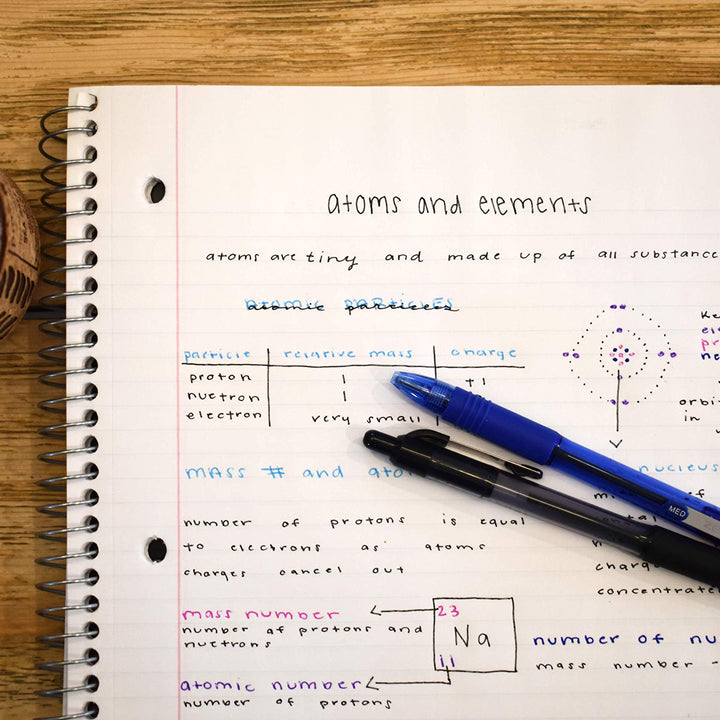 atoms and elements
atoms are tiny and made up of all substance
atomic particles
particle relative mass charge
proton 1 +1
nuetron 1
electron very small
mass # and
nucleus
number of protons is equal
to electrons as atoms
charges cancel out
charg
concentrate
mass number 23
number of protons and
nuetrons
Na
number of nu
mass number -
11
atomic number
number of protons
orbi
in
MED